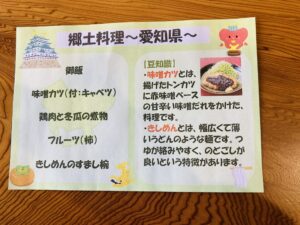 郷土料理～愛知県～
御飯
味噌カツ(付:キャベツ)
鶏肉と冬瓜の煮物
フルーツ(柿)
きしめんのすまし椀
【豆知識】
・味噌カツとは、
揚げたトンカツ
に赤味噌ベース
の甘辛い味噌だれをかけた、
料理です。
・きしめんとは、幅広くて薄
いうどんのような麺です。つ
ゆが絡みやすく、のどごしが
良いという特徴があります。